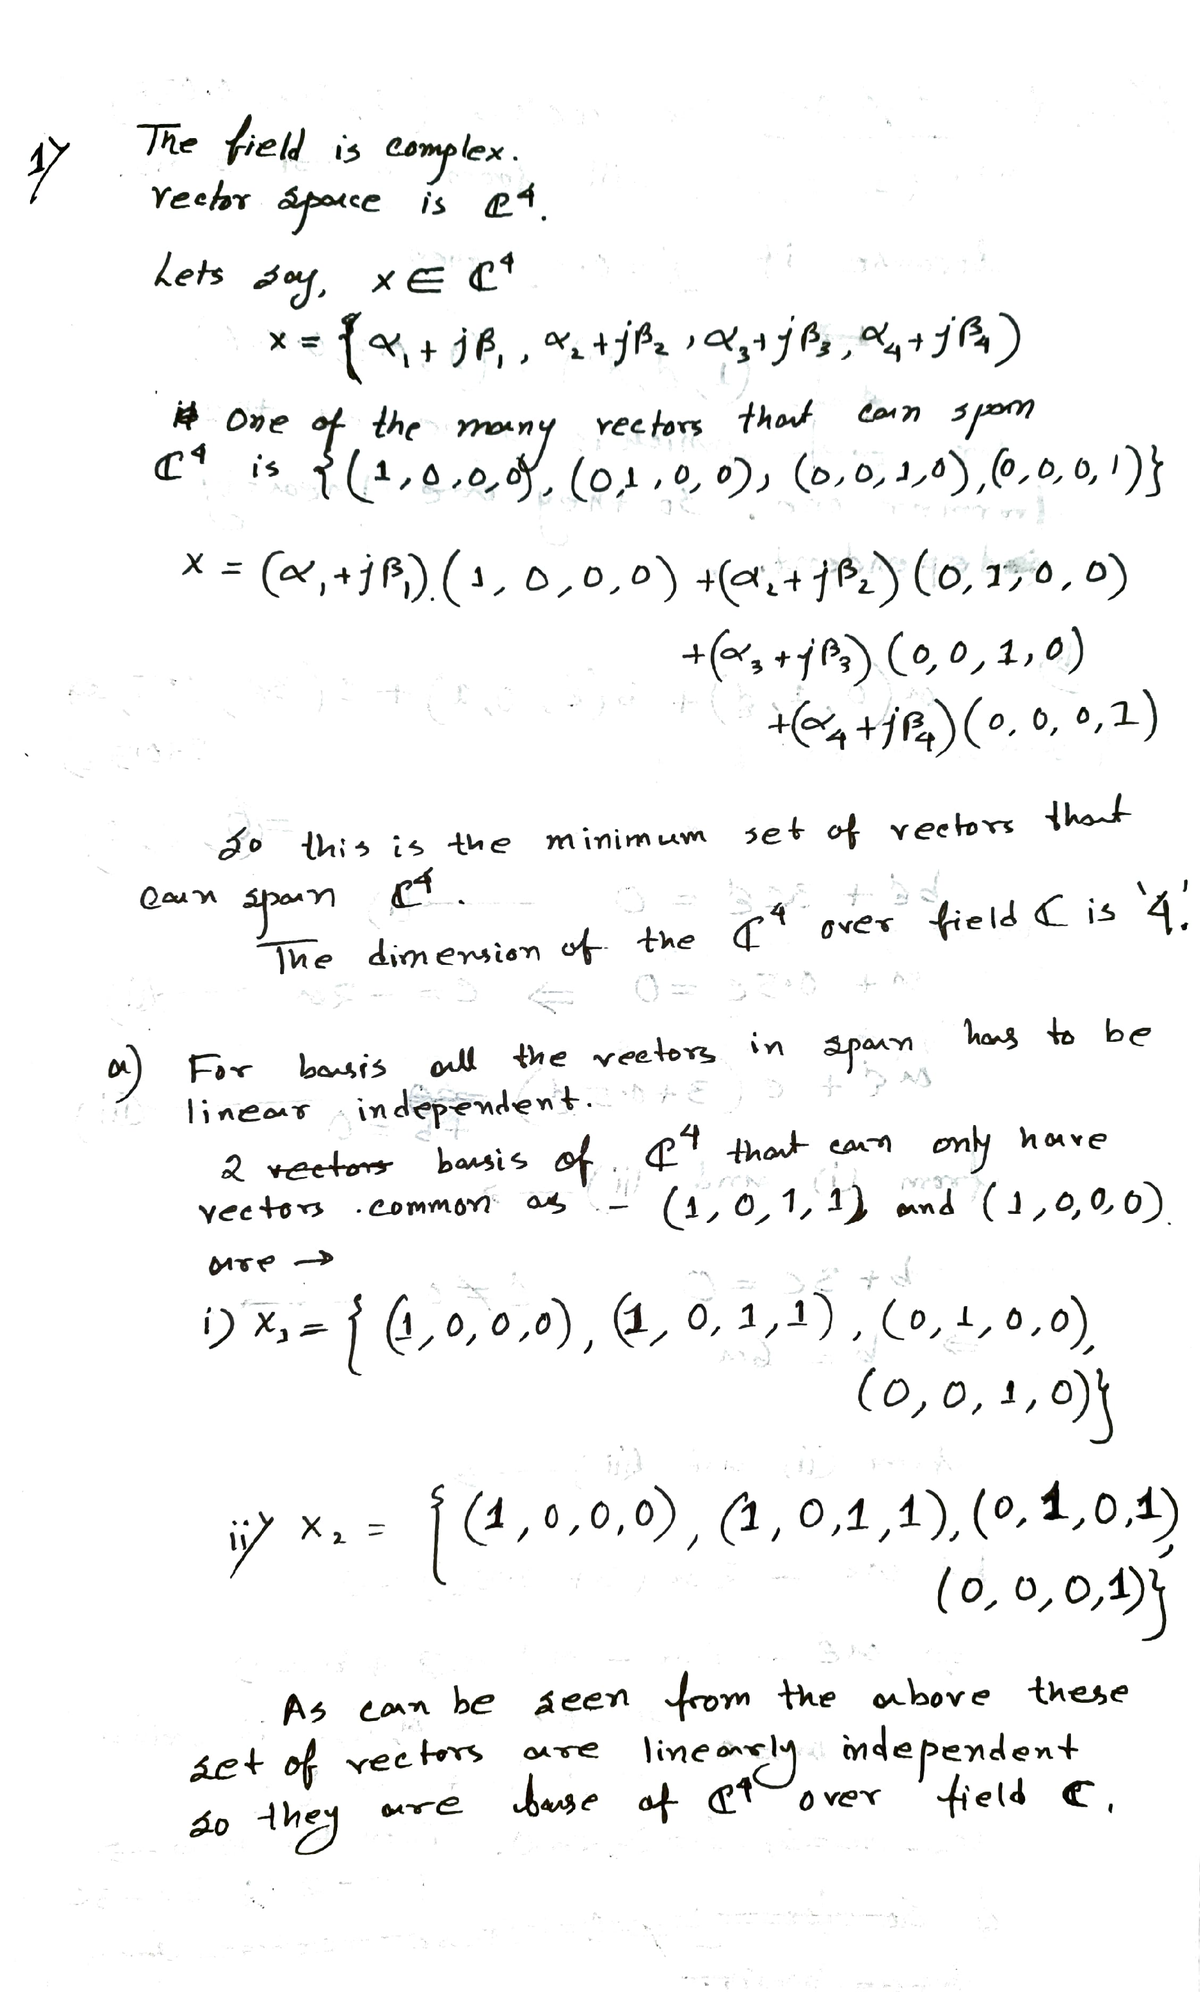 1) The field is complex.
vector space is ℂ⁴.
Lets say, x ∈ ℂ⁴
x = { α₁ + jβ₁, α₂ + jβ₂, α₃ + jβ₃, α₄ + jβ₄)
One of the many vectors that can span
ℂ⁴ is {(1,0,0,0), (0,1,0,0), (0,0,1,0), (0,0,0,1)}
x = (α₁ + jβ₁).(1,0,0,0) + (α₂ + jβ₂)(0,1,0,0)
+ (α₃ + jβ₃)(0,0,1,0)
+ (α₄ + jβ₄)(0,0,0,1)
So this is the minimum set of vectors that
can span ℂ⁴.
The dimension of the ℂ⁴ over field ℂ is '4'.
a) For basis all the vectors in span has to be
linear independent.
2 vectors basis of ℂ⁴ that can only have
vectors common as – (1,0,1,1) and (1,0,0,0)
are →
i) X₁ = { (1,0,0,0), (1,0,1,1), (0,1,0,0),
(0,0,1,0)}
ii) X₂ = { (1,0,0,0), (1,0,1,1), (0,1,0,1),
(0,0,0,1)}
As can be seen from the above these
set of vectors are linearly independent
so they are base of ℂ⁴ over field ℂ.